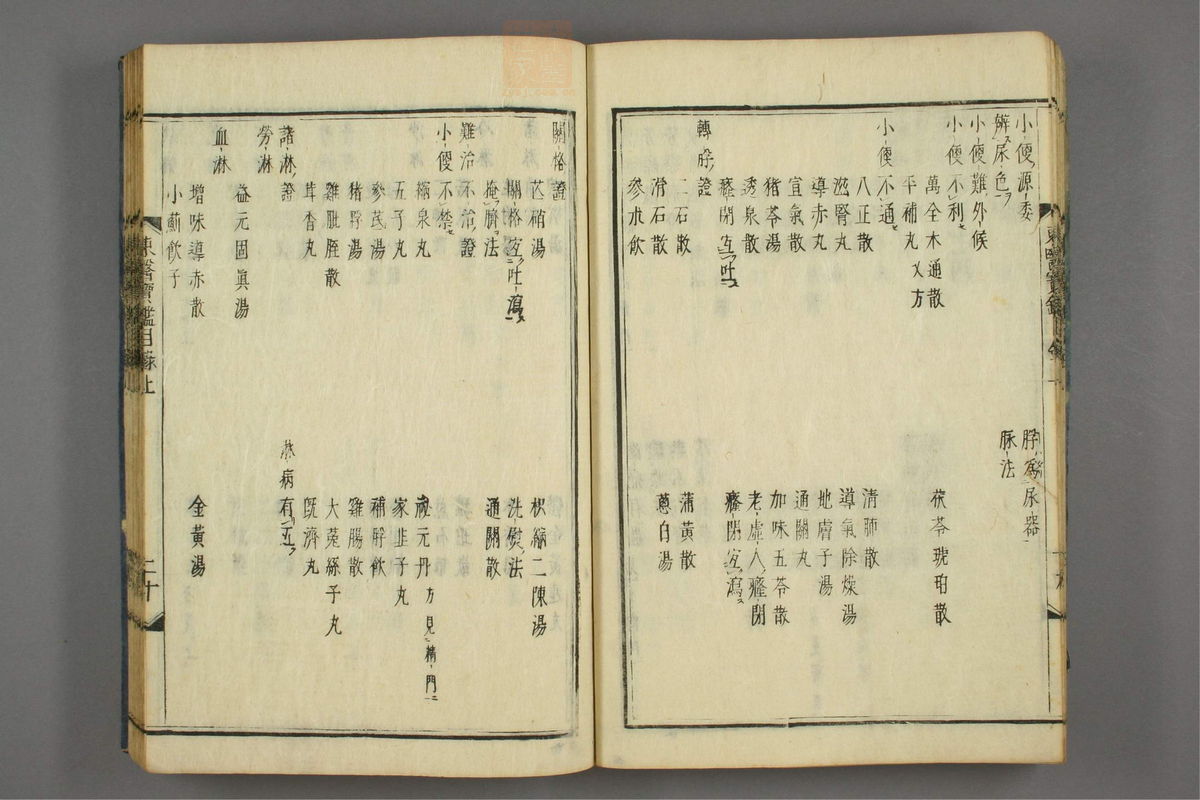 小便源委
脬爲尿器
辨尿色
脉法
小便難外候
小便不利
萬全木通散
茯苓琥珀散
平補丸 又方
小便不通
八正散
清肺散
滋腎丸
導氣除燥湯
導赤丸
地膚子湯
宣氣散
通關丸
猪苓湯
加味五苓散
透泉散
老虚人癃閉
癃閉宜吐
癃閉宜瀉
轉脬證
二石散
蒲黄散
滑石散
葱白湯
参朮飲
東醫寶鑑目録上
關格證
芯稍湯
枳縮二陳湯
關格宜吐瀉
洗熨法
掩臍法
通關散
難治不治證
小便不禁
縮泉丸
秘元丹 方見精門
五子丸
家韭子丸
參芪湯
補脬飲
猪脬湯
雞腸散
雞肶胵散
大菟絲子丸
茸香丸
既濟丸
諸淋證
淋病有五
勞淋
益元固眞湯
血淋
增味導赤散
金黄湯
小薊飲子
東醫寶鑑目録上
二十